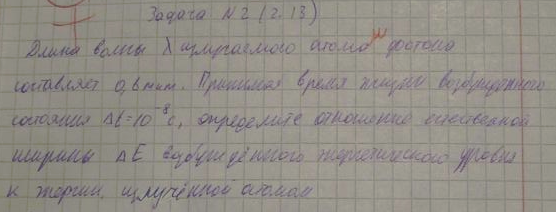 Задача №2 (2.13)
Длина волны λ излучаемого атомом фотона
составляет 0,6 мкм. Принимая время жизни возбужденного
состояния Δt=10⁻⁸с, определите отношение естественной
ширины ΔE возбуждённого энергетического уровня
к энергии, излучённой атомом